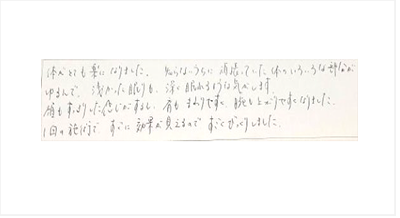 体がとても楽になりました。知らないうちに頑張っていた体のいろいろな部分が
ゆるんで、浅かった眠りも、深く眠れるような気がします。
肩もすっきりした感じがするし、首もまわりやすく、腕も上がりやすくなりました。
1回の施術で、すぐに効果が見えるのですごくびっくりしました。